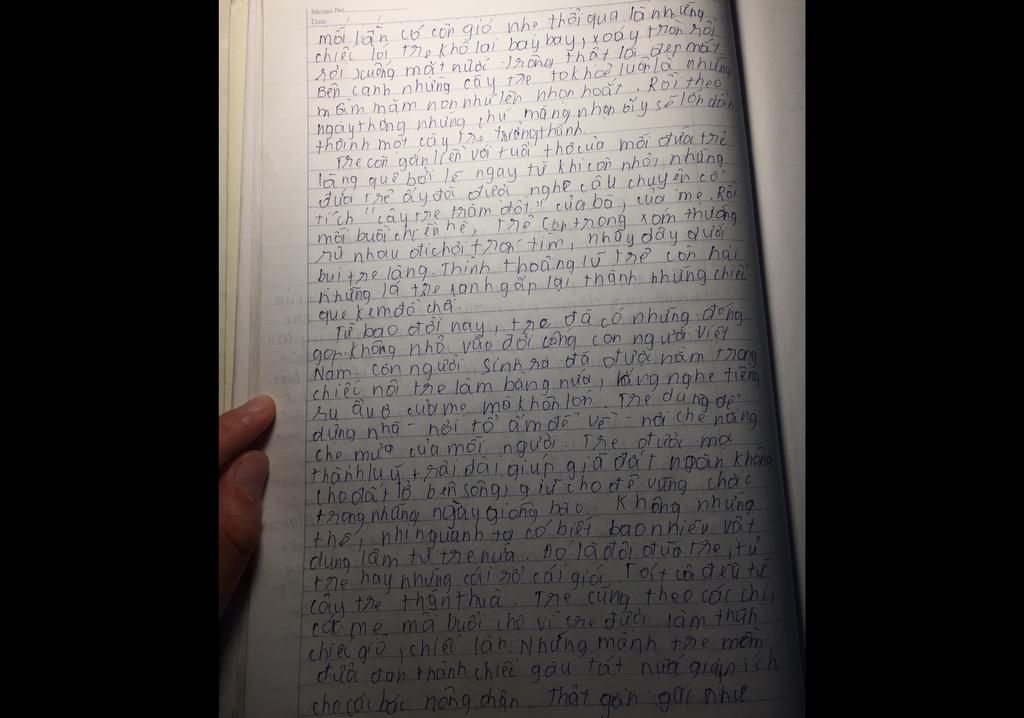 Memo No.
Date / /
mỗi lần có cơn gió nhẹ thổi qua là những
chiếc lá tre khô lại bay bay, xoáy tròn rồi
rơi xuống mặt nước trông thật là đẹp mắt
Bên cạnh những cây tre to khoẻ luôn là những
mầm măm non nhú lên nhọn hoắt. Rồi theo
ngày tháng những chú măng nhọn ấy sẽ lớn dần
thành một cây tre trưởng thành.
Tre còn gắn liền với tuổi thơ của mỗi đứa trẻ
làng quê bởi lẽ ngay từ khi còn nhỏ, những
đứa trẻ ấy đã được nghe câu chuyện cổ
tích "cây tre trăm đốt" của bà, của mẹ. Rồi
mỗi buổi chiều hè, trẻ con trong xóm thường
rủ nhau đi chơi trốn tìm, nhảy dây dưới
bụi tre làng. Thỉnh thoảng lũ trẻ còn hái
những lá tre xanh gấp lại thành những chiếc
que kem đồ chơ
Từ bao đời nay, tre đã có những đóng
góp không nhỏ vào đời sống con người Việt
Nam. con người sinh ra đã được nằm trong
chiếc nôi tre làm bằng nứa, lắng nghe tiếng
ru ầu ơ của mẹ mà khôn lớn. Tre dùng để
dựng nhà - nơi tổ ấm để về - nơi che nắng
che mưa của mỗi người. Tre được mọ
thành luỹ trải dài giúp giữ đất ngăn không
cho đất lở bên sông, giữ cho đê vững chắc
trong những ngày giông bão. Không những
thế, nhìn quanh ta có biết bao nhiêu vật
dụng làm từ tre nứa. Đó là đôi đũa tre, tủ
tre hay những cái rổ cái giá. Tất cả đều từ
cây tre thân thuộ. Tre cũng theo các chị,
các mẹ mà buổi chợ vì tre được làm thàn
chiếc giỏ, chiếc làn. Những mảnh tre mềm
được đan thành chiếc gàu tát nước giúp ích
cho các bác nông dân. Thật gần gũi như